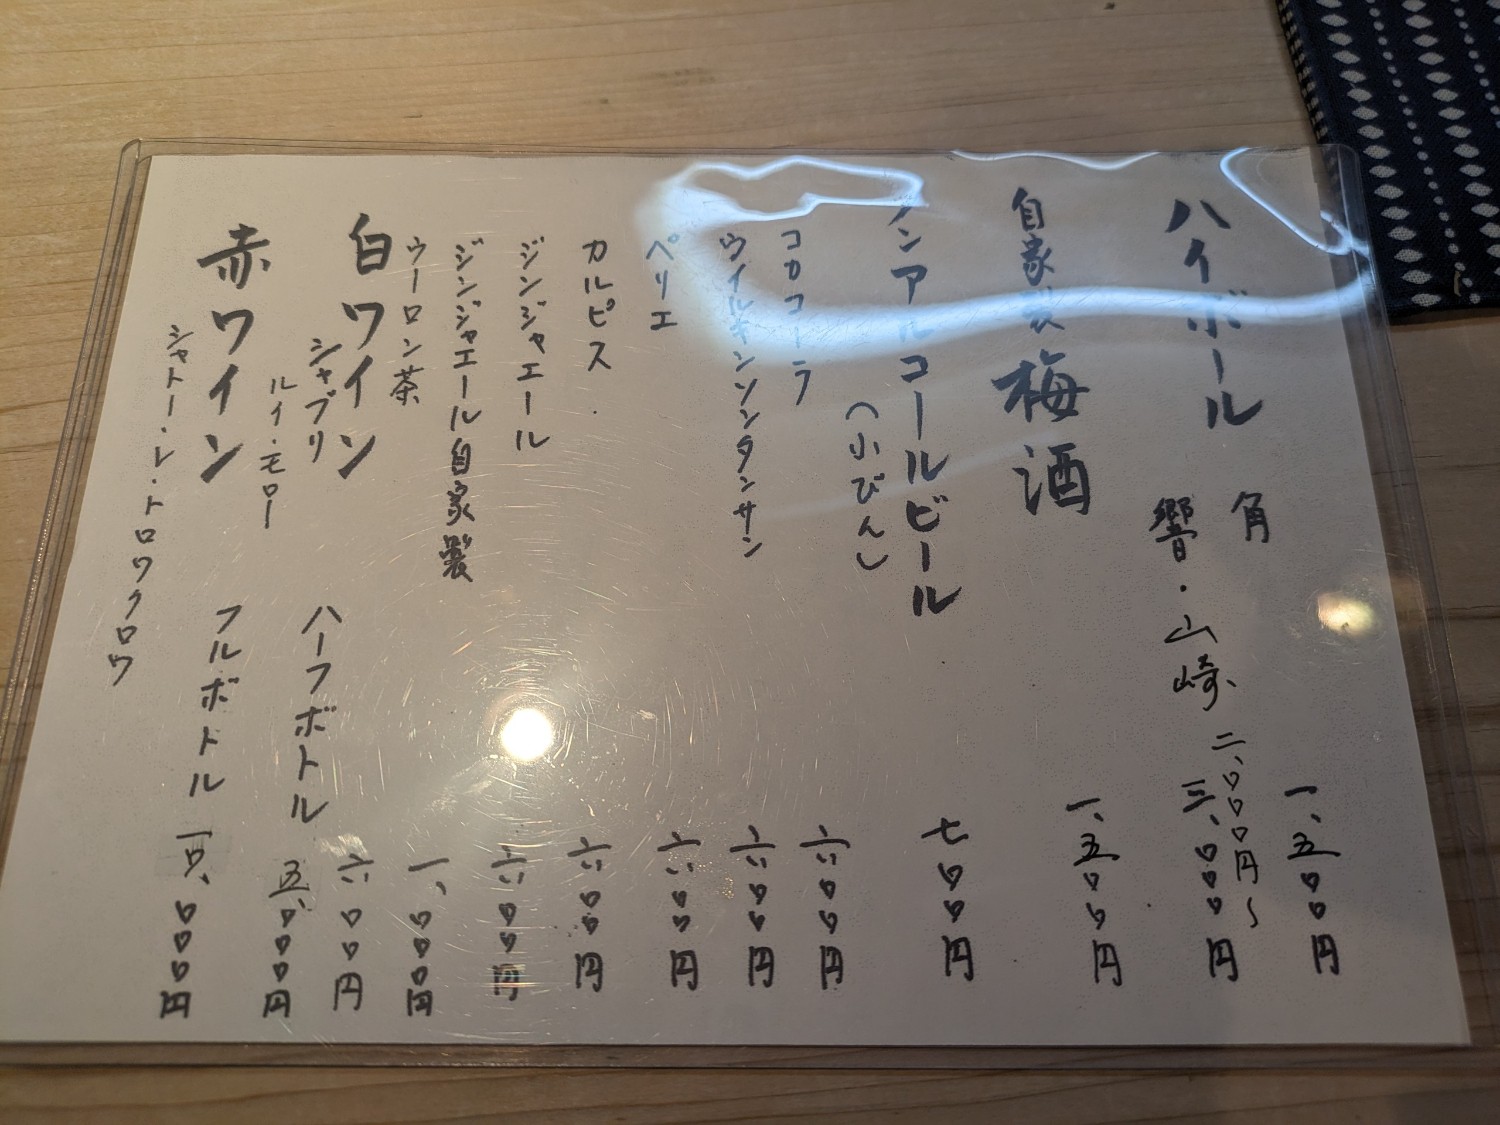 ハイボール 角 一、五〇〇円
二、〇〇〇円〜
響・山崎 三、〇〇〇円
自家製梅酒 一、五〇〇円
ノンアルコールビール 七〇〇円
(小びん)
コカコーラ 六〇〇円
ウイルキンソンタンサン 六〇〇円
ペリエ 六〇〇円
カルピス 六〇〇円
ジンジャエール 六〇〇円
ジンジャエール自家製 一、〇〇〇円
ウーロン茶 六〇〇円
白ワイン ハーフボトル 五、〇〇〇円
シャブリ
ルイ・モロー
赤ワイン フルボトル 一〇、〇〇〇円
シャトー・レ・トロワクロワ